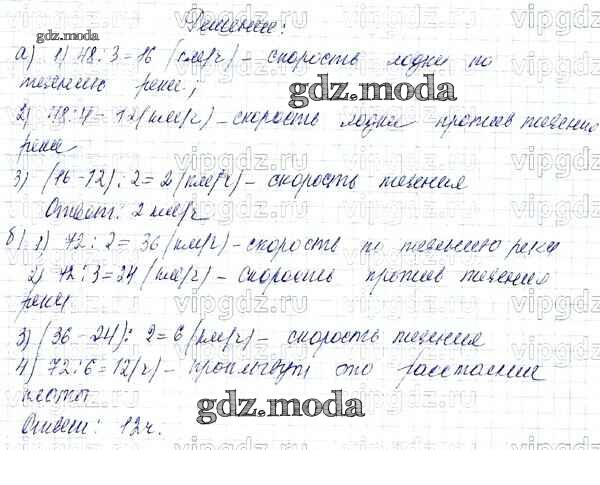 Решение:
gdz.moda
а) 1) 48:3=16 (км/ч) – скорость лодки по
течению реки;
gdz.moda
2) 48:4=12 (км/ч) – скорость лодки против течения
реки
3) (16-12):2=2 (км/ч) – скорость течения
Ответ: 2 км/ч
б) 1) 72:2=36 (км/ч) – скорость по течению реки
2) 72:3=24 (км/ч) – скорость против течения
реки
3) (36-24):2=6 (км/ч) – скорость течения
4) 72:6=12 (ч) – проплывут это расстояние
плоты.
gdz.moda
Ответ: 12ч.
vipgdz.ru